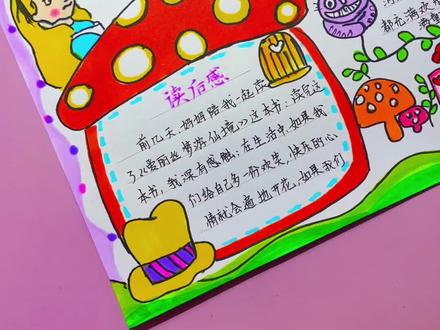 读后感
前几天,妈妈陪我一起读
了《爱丽丝梦游仙境》这本书;读完这
本书,我深有感触:在生活中,如果我
们给自己多一份欢笑,快乐的心
情就会遍地开花,如果我们
都充满欢